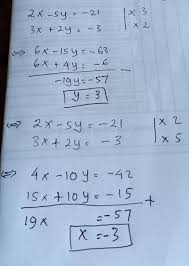 2x - 5y = -21 | x 3
3x + 2y = -3 | x 2
⇔ 6x - 15y = -63
6x + 4y = -6
-
-19y = -57
y = 3
⇔ 2x - 5y = -21 | x 2
3x + 2y = -3 | x 5
⇔ 4x - 10y = -42
15x + 10y = -15 +
19x = -57
x = -3